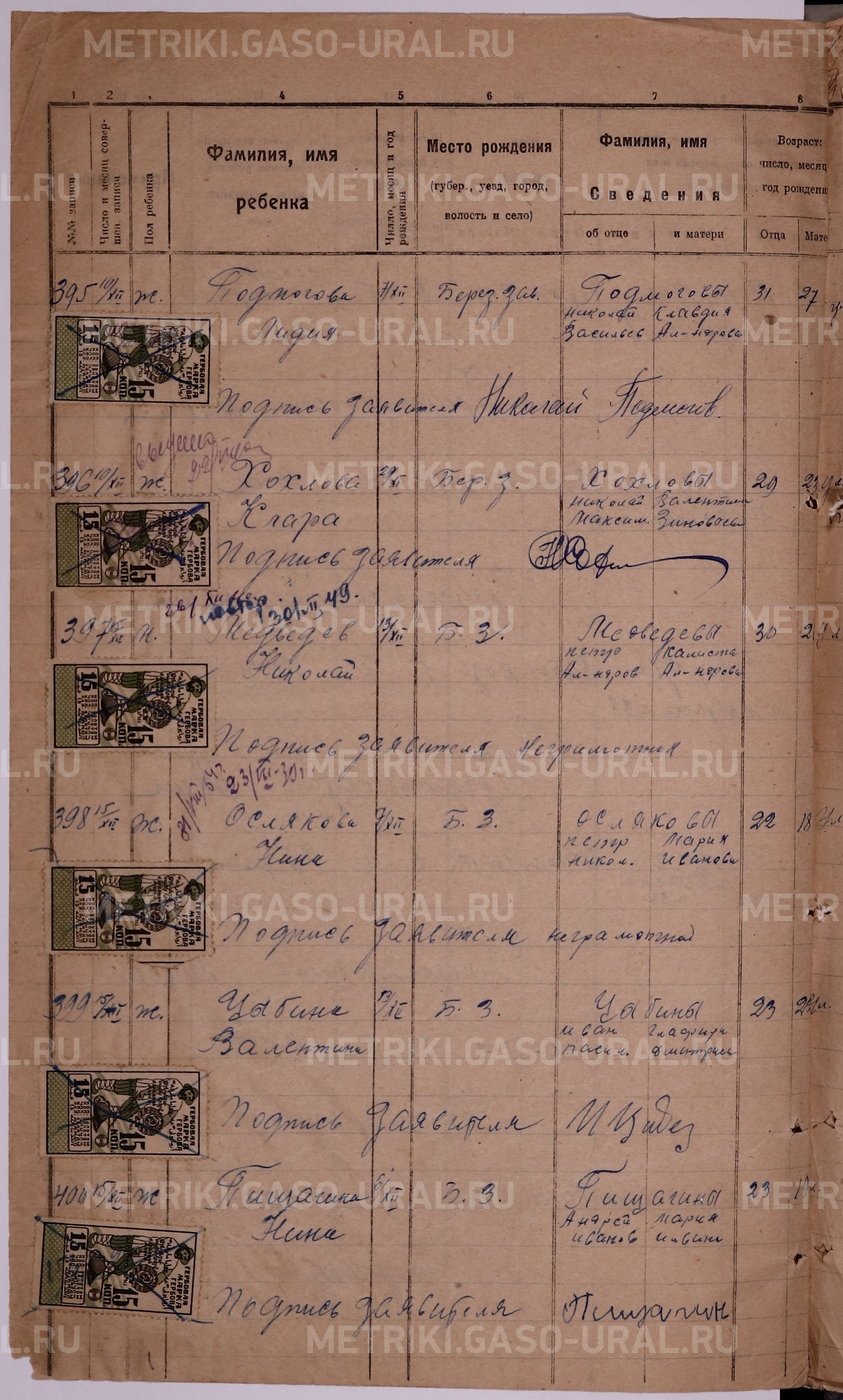 METRIKI.GASO-URAL.RU
1 2 4 5 6 7 8
№№ записи
Число и месяц совершен. записи
Пол ребенка
Фамилия, имя
ребенка
Число, месяц и год рождения
Место рождения
(губер., уезд, город,
волость и село)
Фамилия, имя
Сведения
об отце и матери
Возраст:
число, месяц
год рождени
Отца Мате
395 10/XII ж. Подмогова 7/XII Берез. зав. Подмоговы 31 27
Лидия Николай Клавдия
Васильев Ал-ндровн
ГЕРБОВАЯ МАРКА 15 КОП.
Подпись заявителя Николай Подмогов.
396 10/XII ж. Хохлова 29/XI Бер. з. Хохловы 29
Клара Николай Валентина
Максим. Зиновьевн
ГЕРБОВАЯ МАРКА 15 КОП.
Подпись заявителя
повтор 30/XII 49.
397 Медведев 13/XII Б. З. Медведевы 30
Николай Петр Калиста
Ал-ндров Ал-ндровн
ГЕРБОВАЯ МАРКА 15 КОП.
Подпись заявителя неграмотная
23/XII-30 г.
398 15/XII ж. Ослякова 7/XII Б. З. Осляковы 22 18
Нина Петр Мария
Никол. Ивановн
ГЕРБОВАЯ МАРКА 15 КОП.
Подпись заявителя неграмотной
399 15/XII ж. Цыбина 13/XII Б. З. Цыбины 23
Валентина Иван Глафира
Васил. Дмитриевн
ГЕРБОВАЯ МАРКА 15 КОП.
Подпись заявителя И Цыбин
400 15/XII ж Пищагина 6/XII Б. З. Пищагины 23
Нина Андрей Мария
Иванов
ГЕРБОВАЯ МАРКА 15 КОП.
Подпись заявителя Пищагин